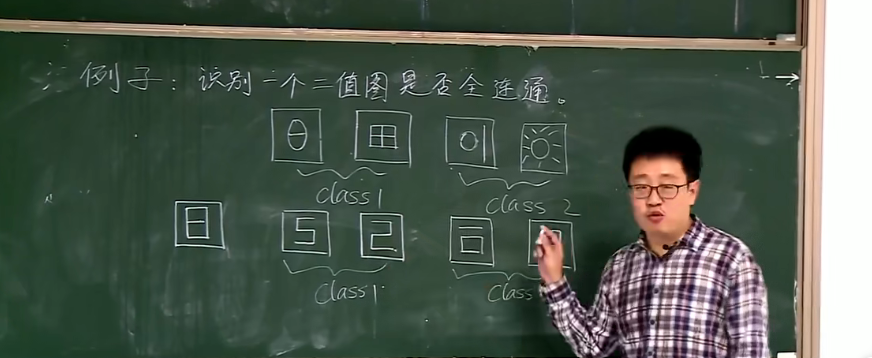 例子：识别一个二值图是否全连通。
class1
class 2
class1
class